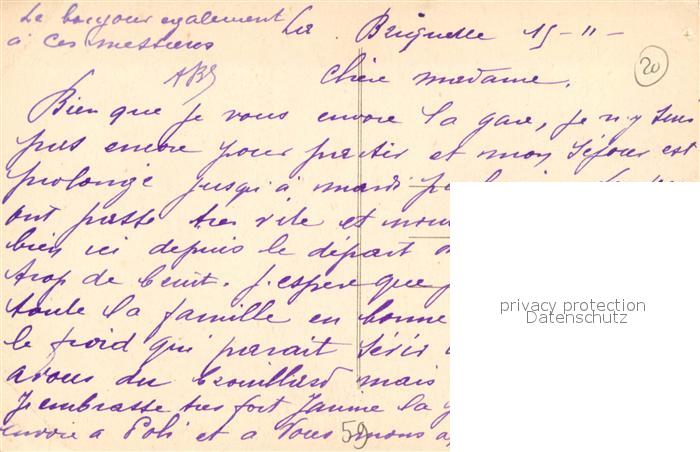 Le bonjour egalement
à ces messieurs
La Briguelle 15-11-
20
Chère madame,
Bien que je vous envoie la gare, je n'y suis
pas encore pour partir et mon séjour est
prolongé jusqu'à mardi
ont passé tres vite et nous
bien ici depuis le départ
trop de bruit. J'espere que
toute la famille en bonne
le froid qui parait sévir
avons du brouillard mais
J'embrasse tres fort Janine la
envoie a Poli et a Vous
59
privacy protection
Datenschutz